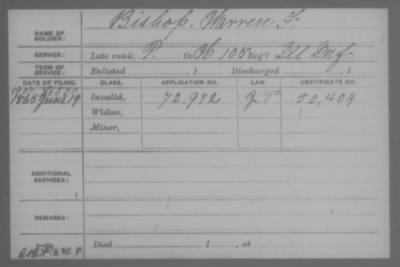 NAME OF SOLDIER: Bishop, Warren F.
SERVICE: Late rank, P. Co. H 105 Reg't Ill Inf.
TERM OF SERVICE: Enlisted , 1 Discharged , 1
DATE OF FILING. CLASS. APPLICATION NO. LAW. CERTIFICATE NO.
1865 June 19 Invalid, 72.972 50,404
Widow,
Minor,
ADDITIONAL SERVICES:
REMARKS:
Died , 1 , at